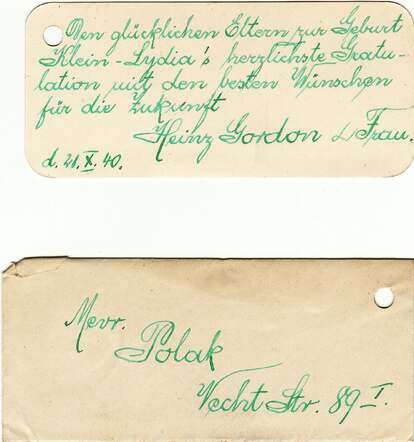 Den glücklichen Eltern zur Geburt
Klein-Lydia's herzlichste Gratu-
lation mit den besten Wünschen
für die Zukunft
Heinz Gordon & Frau.
d. 21. X. 40.
Mevr.
Polak
Vecht Str. 89 I.